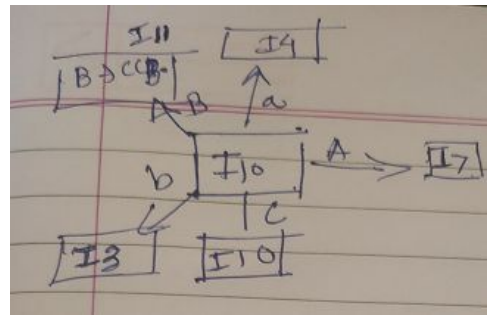 I11
I4
B → CCB.
B
a
I10
A
I7
b
C
I3
I10